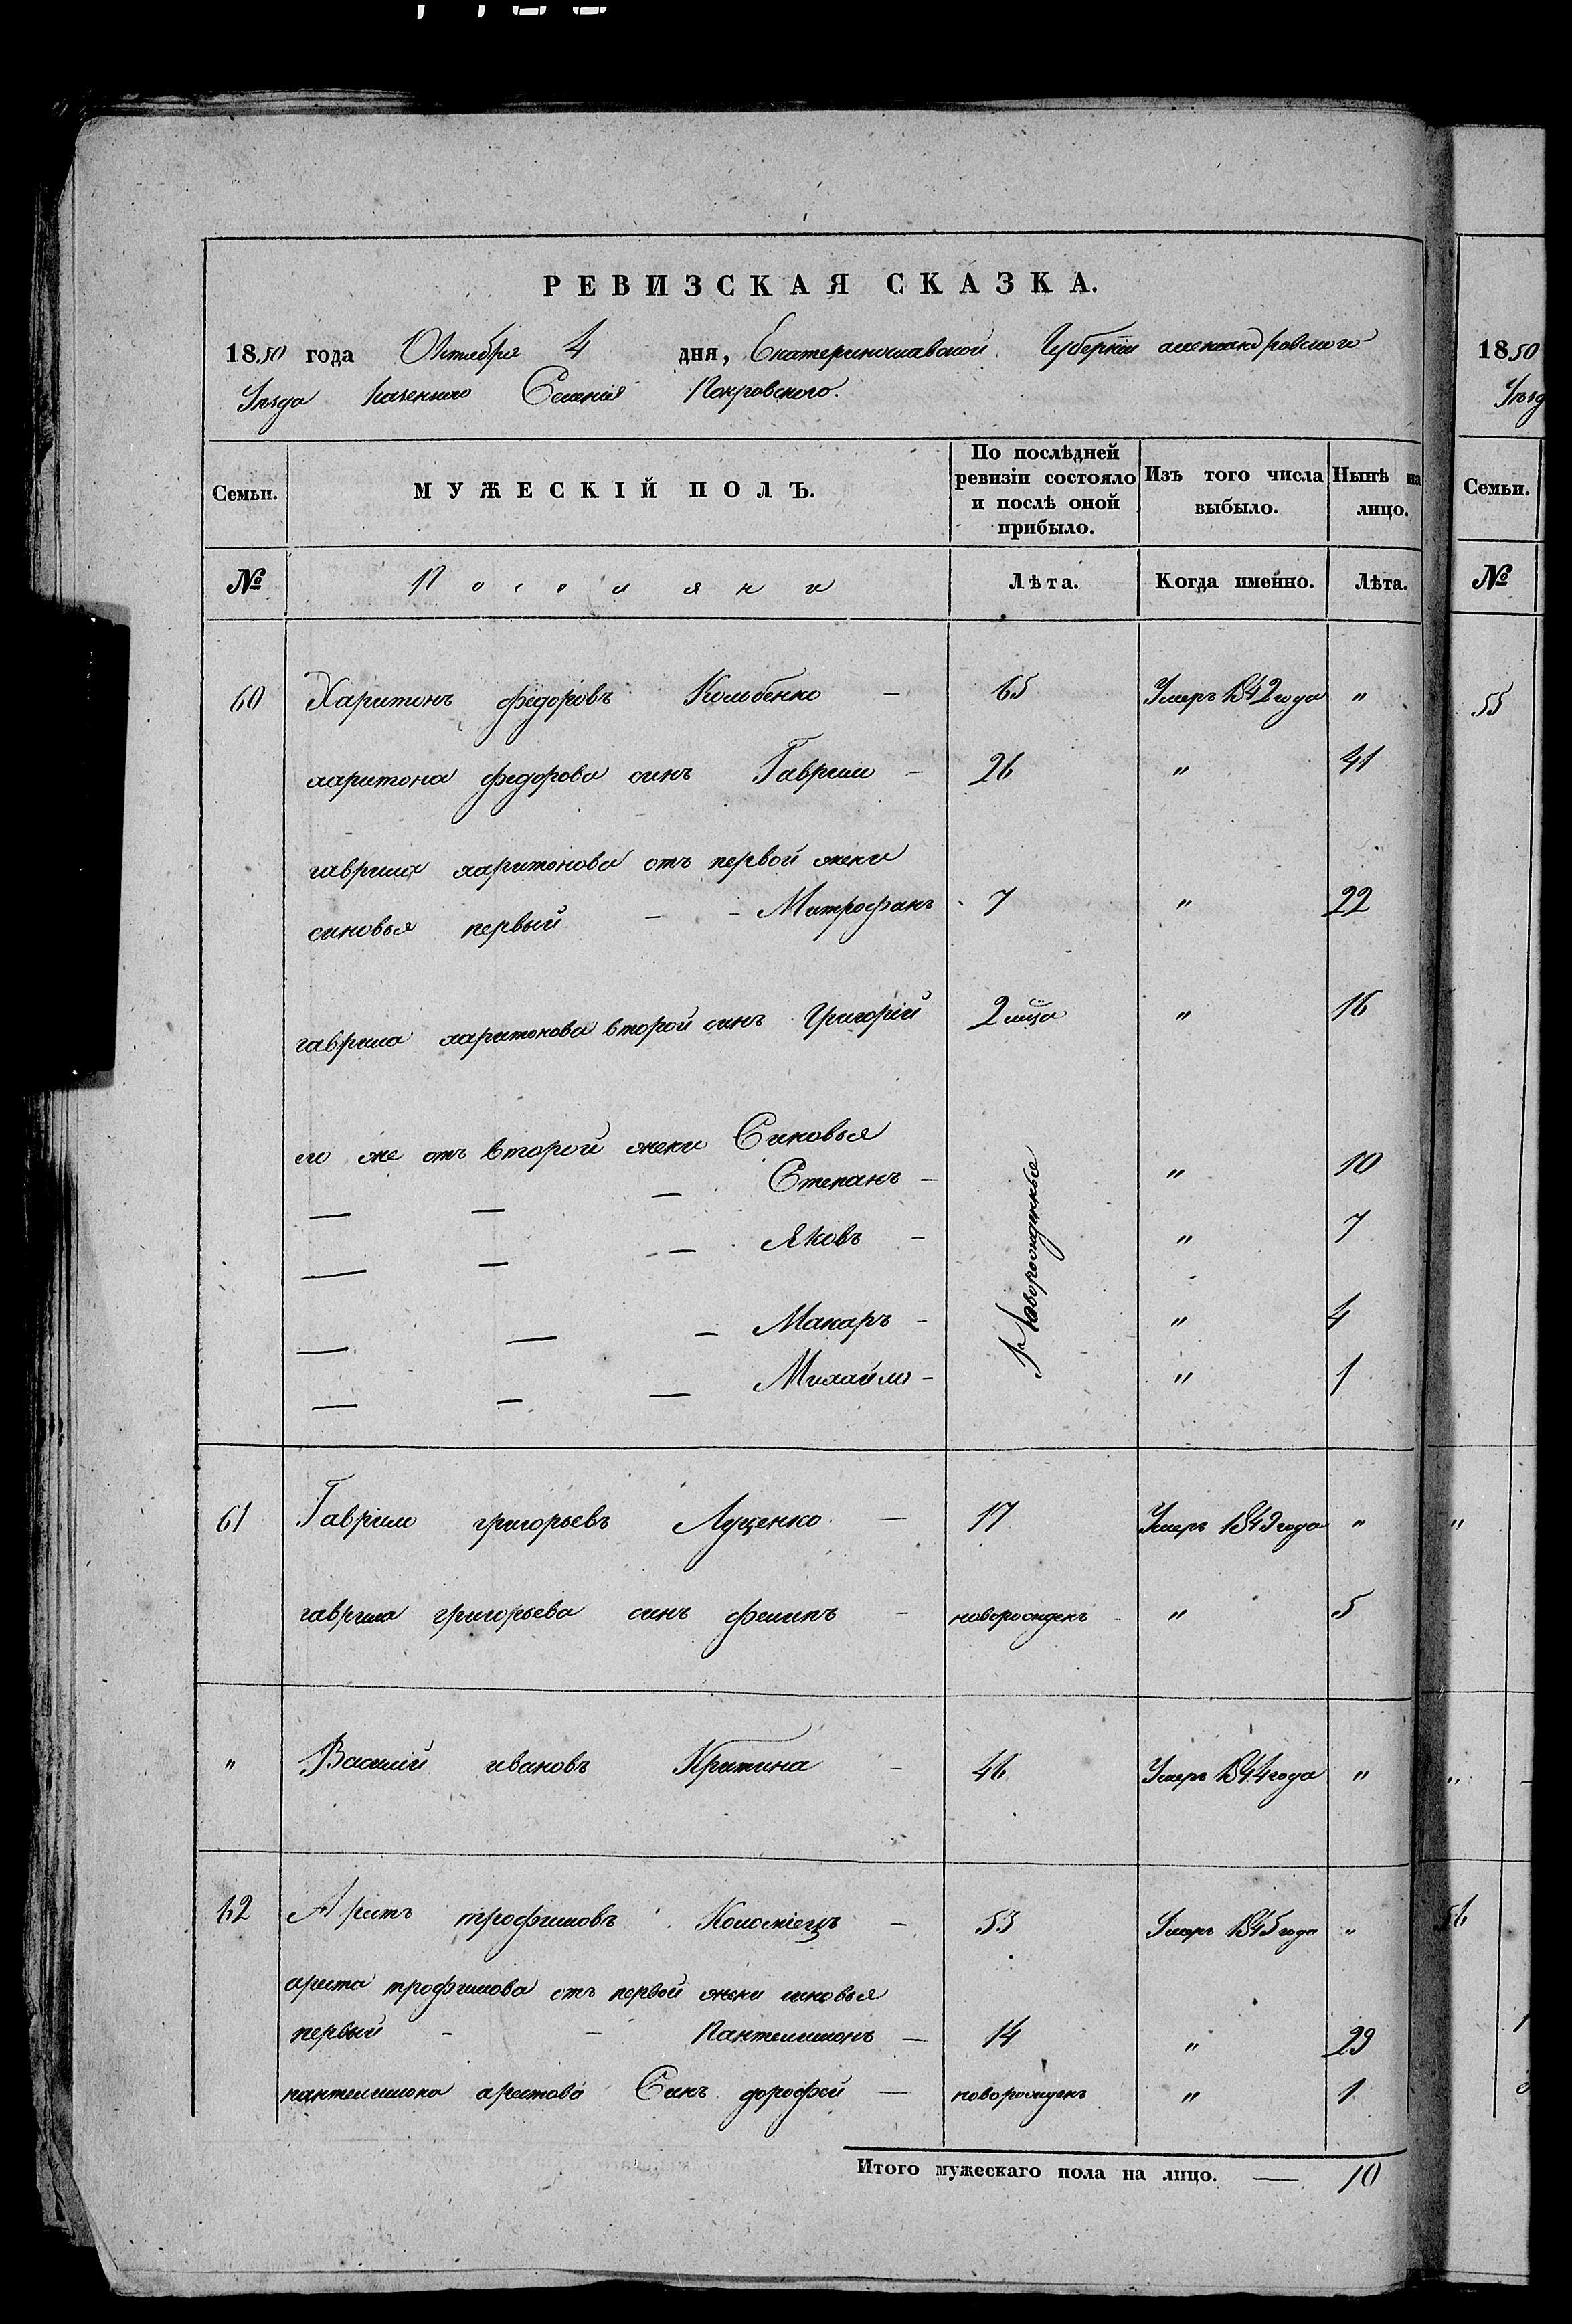 РЕВИЗСКАЯ СКАЗКА.
1850 года Октября 4 дня, Екатеринославской Губерніи александровского
Уѣзда казенного Селенія Покровского.
Семьи. МУЖЕСКІЙ ПОЛЪ. По послѣдней ревизіи состояло и послѣ оной прибыло. Изъ того числа выбыло. Нынѣ на лицо.
№ Поселяни Лѣта. Когда именно. Лѣта.
60 Харитонъ федоровъ Колбенко — 65 Умеръ 1842 года "
харитона федорова синъ Гаврило — 26 " 41
гаврила харитонова отъ первой жени
синовья первый — — Митрофанъ 7 " 22
гаврила харитонова второй синъ Григорій 2 мца " 16
его же отъ второй жени Синовья
— — — Степанъ — новорожденные " 10
— — — Яковъ — " 7
— — — Макаръ — " 4
— — — Михайло — " 1
61 Гаврило григорьевъ Луценко — 17 Умеръ 1849 года "
гаврила григорьева синъ филипъ — новорожденъ " 5
" Василій ивановъ Критина — 46 Умеръ 1844 года "
62 Арстъ трофимовъ Коломіецъ — 53 Умеръ 1845 года "
ариста трофимова отъ первой жени синовья
первый — — Пантелимонъ — 14 " 29
пантелимона аристова Синъ дорофей — новорожденъ " 1
Итого мужескаго пола на лицо. — 10
1850
Уѣзд
Семьи.
№
55
"
"
56